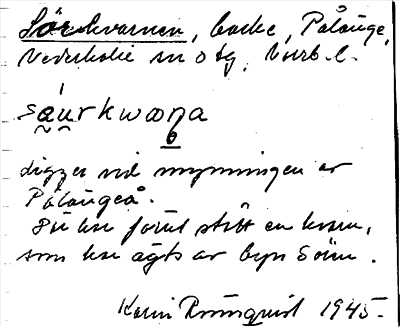 Sörkvarnen, backe, Pålänge,
Nederkalix sn o tg, Norrb. l.
såu̯rkwɷɳa
ligger vid mynningen av
Pålängeå.
Där har förut stått en kvarn,
som har ägts av byn Sören.
Karin Runnquist 1945.